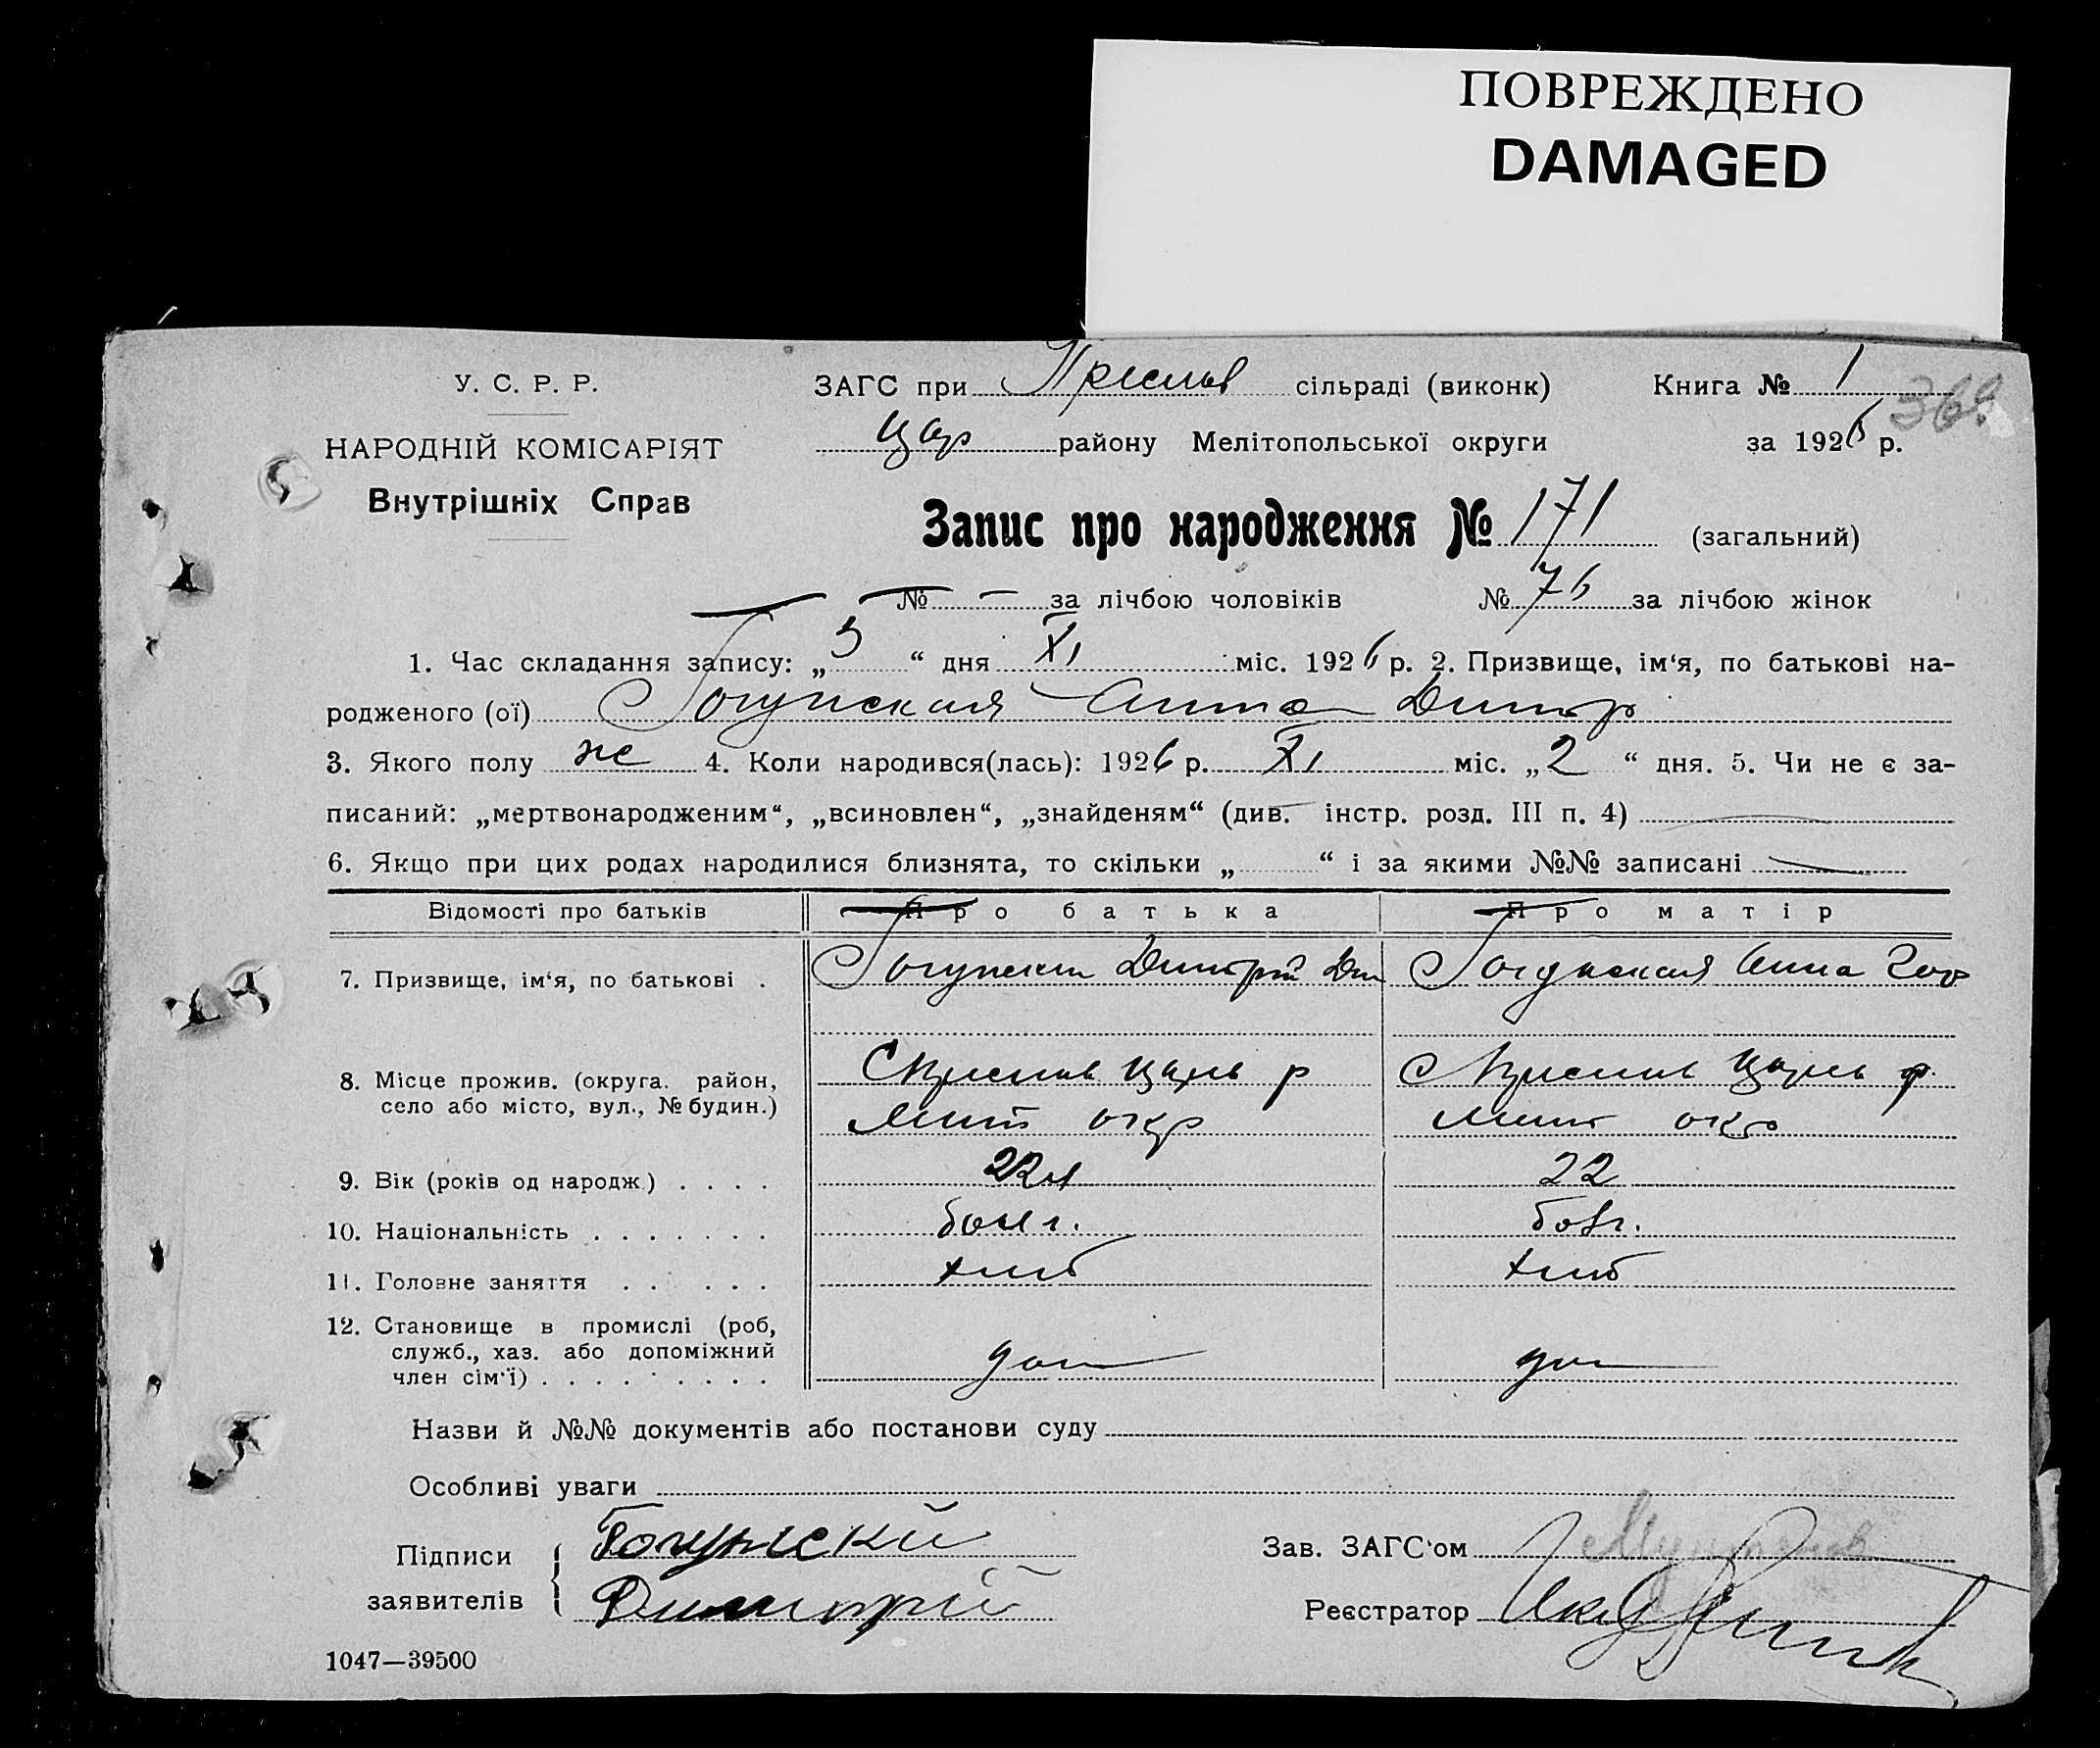 ПОВРЕЖДЕНО
DAMAGED
У. С. Р. Р.
ЗАГС при Преслав сільраді (виконк) Книга № 1
369
НАРОДНІЙ КОМІСАРІЯТ
Цар району Мелітопольської округи за 1926 р.
Внутрішніх Справ
Запис про народження № 171 (загальний)
№ — за лічбою чоловіків № 76 за лічбою жінок
1. Час складання запису: „5“ дня XI міс. 1926 р. 2. Призвище, ім‘я, по батькові на-
родженого (ої) Гогунская Анна Дмитр
3. Якого полу ж 4. Коли народився(лась): 1926 р. XI міс. „2“ дня. 5. Чи не є за-
писаний: „мертвонародженим“, „всиновлен“, „знайденям“ (див. інстр. розд. III п. 4) —
6. Якщо при цих родах народилися близнята, то скільки „ “ і за якими №№ записані —
Відомості про батьків Про батька Про матір
7. Призвище, ім‘я, по батькові . Гогунский Дмитрий Дм Гогунская Анна
8. Місце прожив. (округа. район, село або місто, вул., № будин.)
С Преслав Царев р С Преслав Царев р.
Мелит окр Мелит окр
9. Вік (років од народж.) . . . . 22 22
10. Національність . . . . . . . болг. болг.
11. Головне заняття . . . . . . хліб хліб
12. Становище в промислі (роб, служб., хаз. або допоміжний член сім‘ї) . . . . . . . . . доп доп
Назви й №№ документів або постанови суду
Особливі уваги
Підписи заявителів
Гогунский
Димитрий
Зав. ЗАГС‘ом
Реєстратор
1047—39500